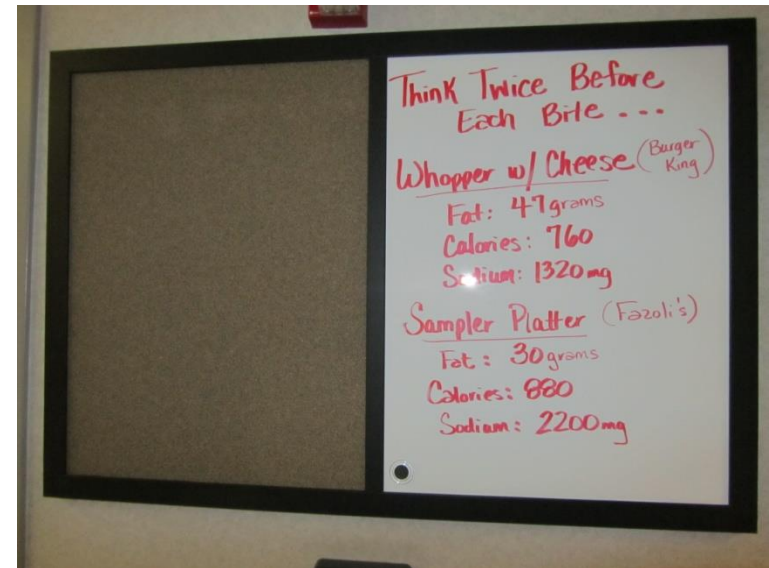 Think Twice Before
Each Bite ...
Whopper w/ Cheese (Burger King)
Fat: 47 grams
Calories: 760
Sodium: 1320 mg
Sampler Platter (Fazoli's)
Fat: 30 grams
Calories: 880
Sodium: 2200 mg